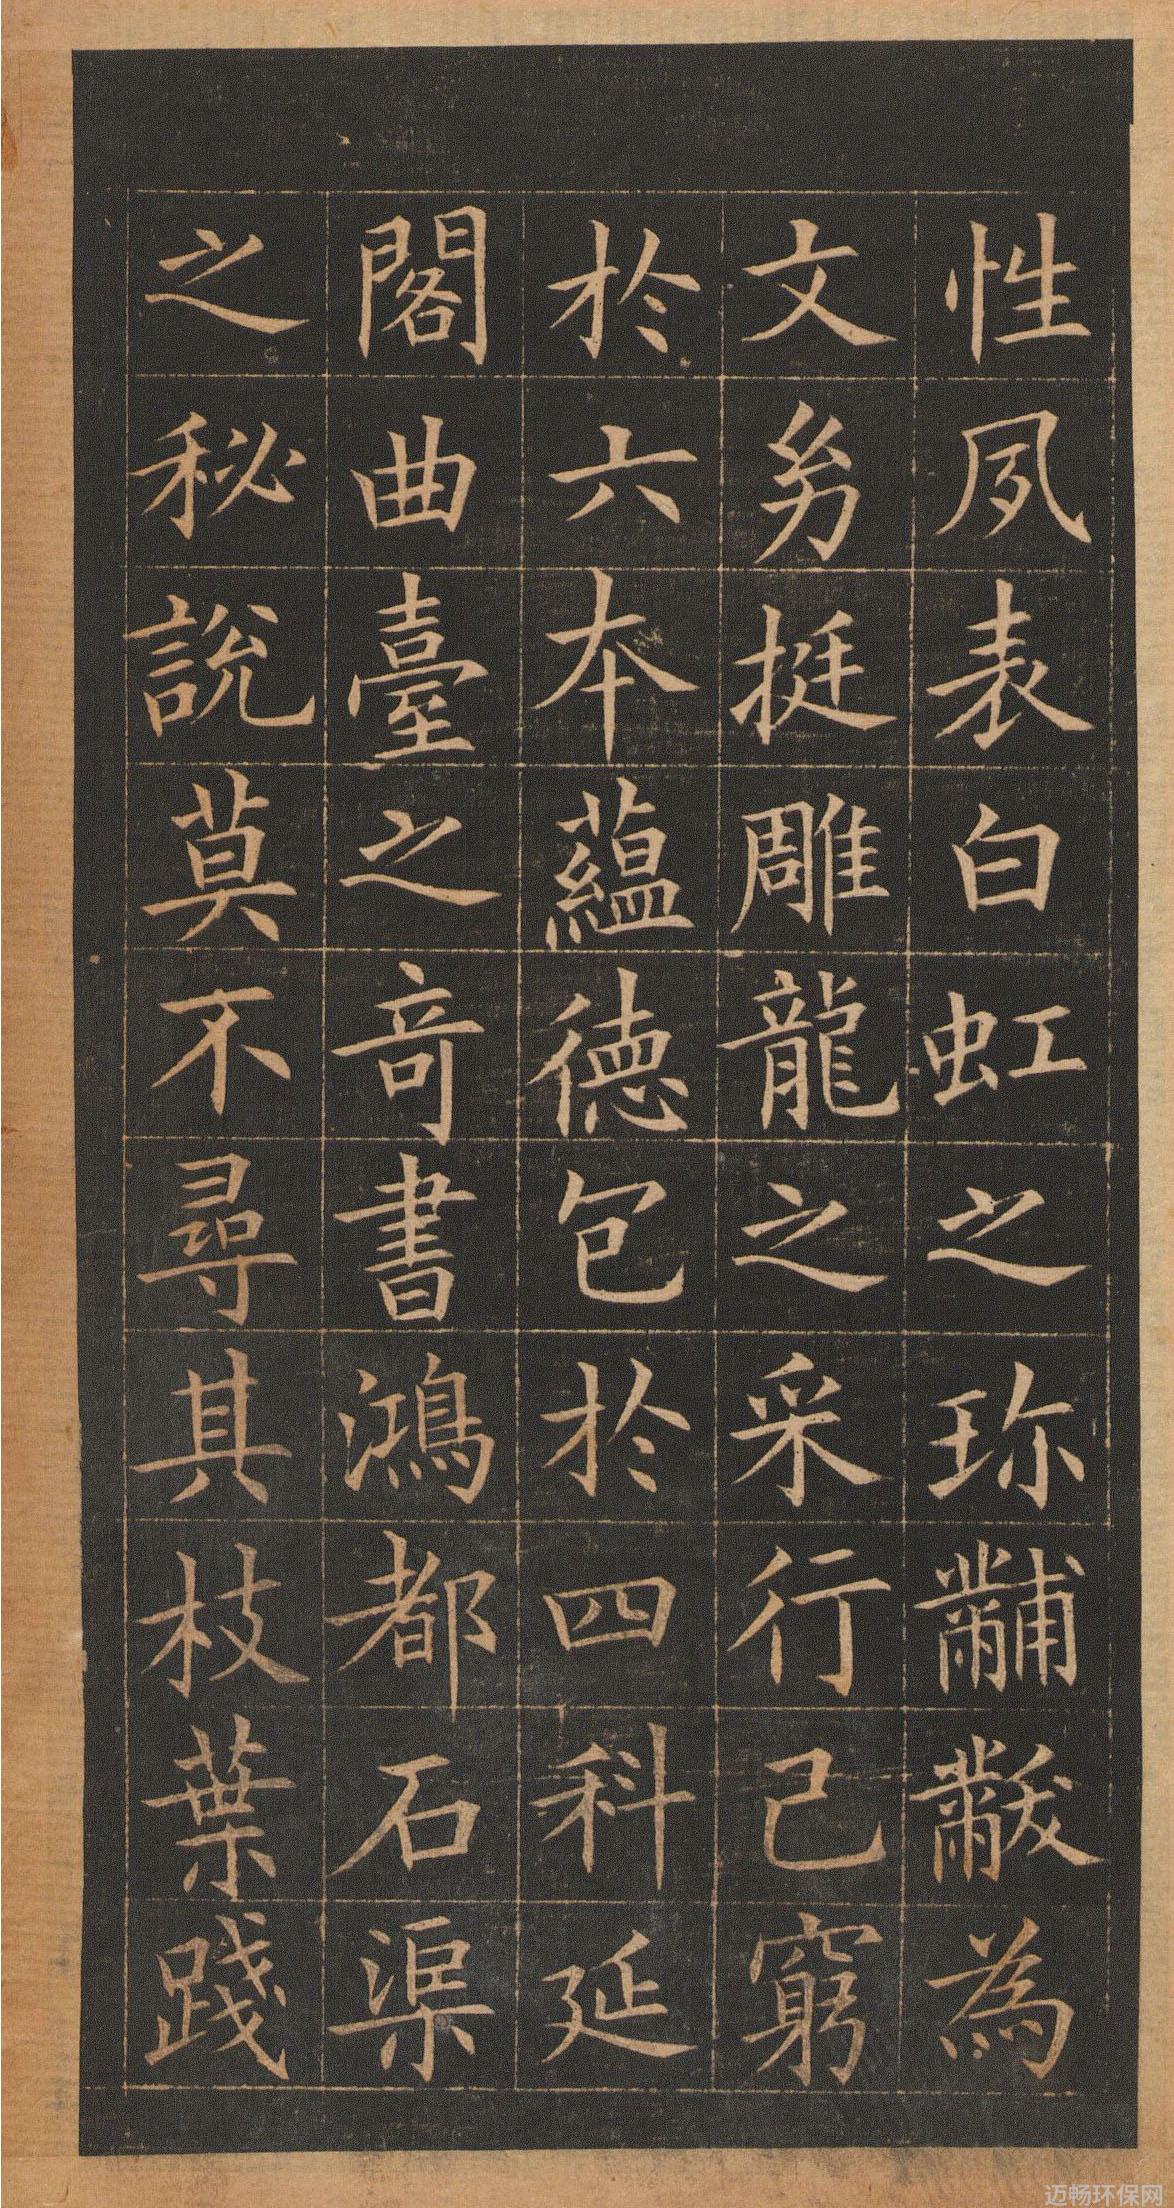 性夙表白虹之珎黼黻為
文㓜挺雕龍之采行已窮
於六本蘊德包於四科延
閣曲臺之竒書鴻都石渠
之秘說莫不尋其枝葉踐
迈畅环保网